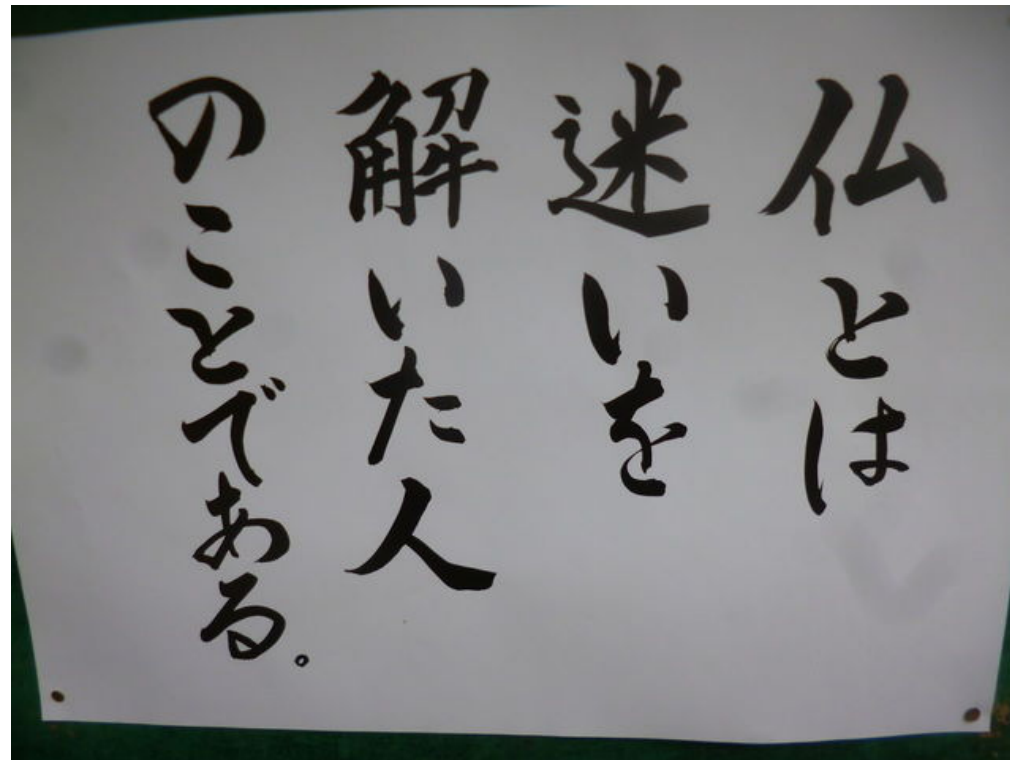 仏とは
迷いを
解いた人
のことである。